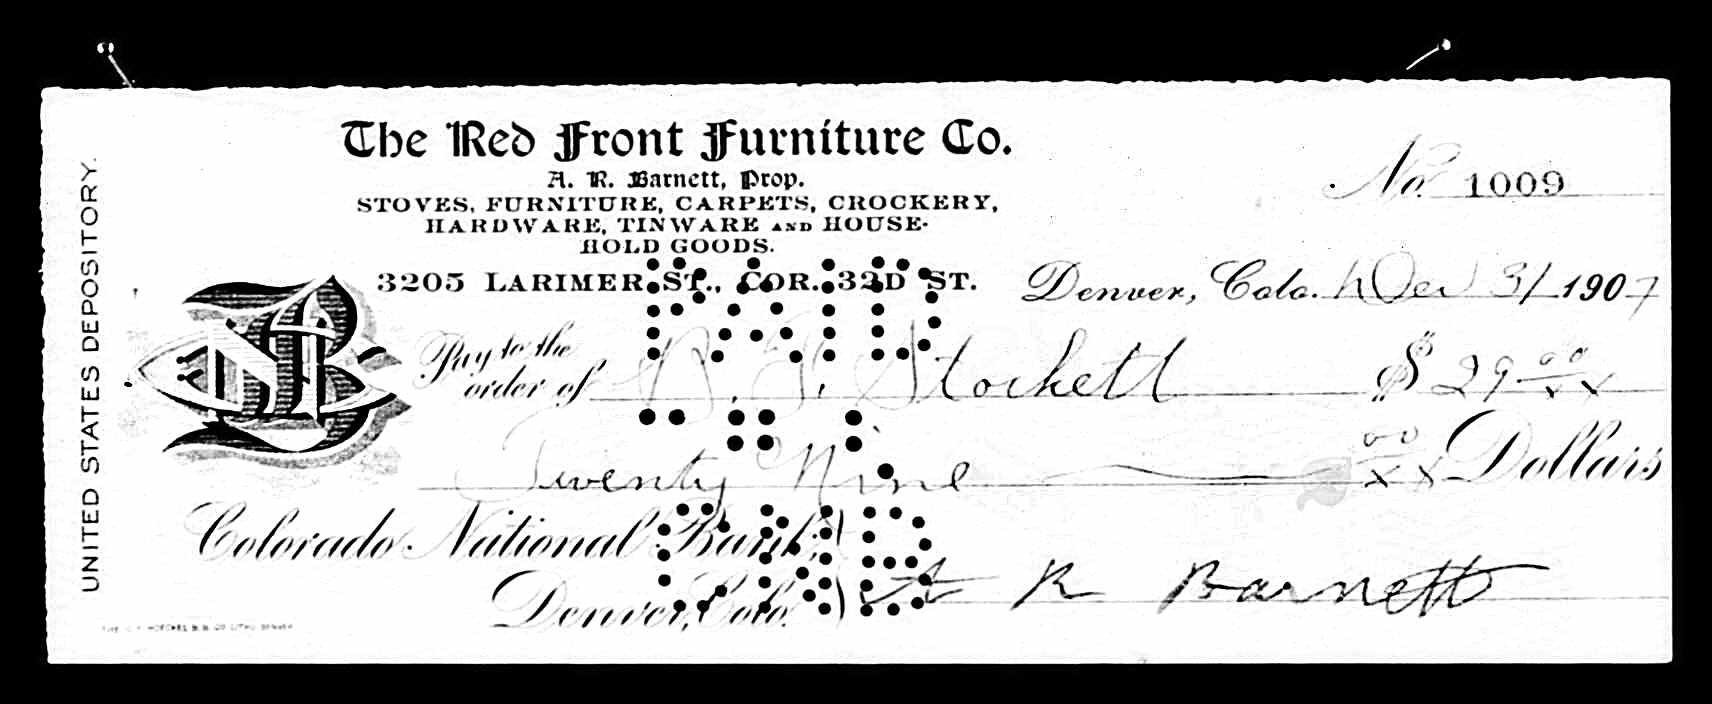 The Red Front Furniture Co.
A. R. Barnett, Prop.
STOVES, FURNITURE, CARPETS, CROCKERY,
HARDWARE, TINWARE AND HOUSE-
HOLD GOODS.
3205 LARIMER ST., COR. 32D ST.
No. 1009
Denver, Colo. Dec 31 1907
Pay to the order of B. F. Stockett $ 29 00/xx
Twenty Nine 00/xx Dollars
Colorado National Bank,
Denver, Colo.
A R Barnett
UNITED STATES DEPOSITORY.
PAID
CNB